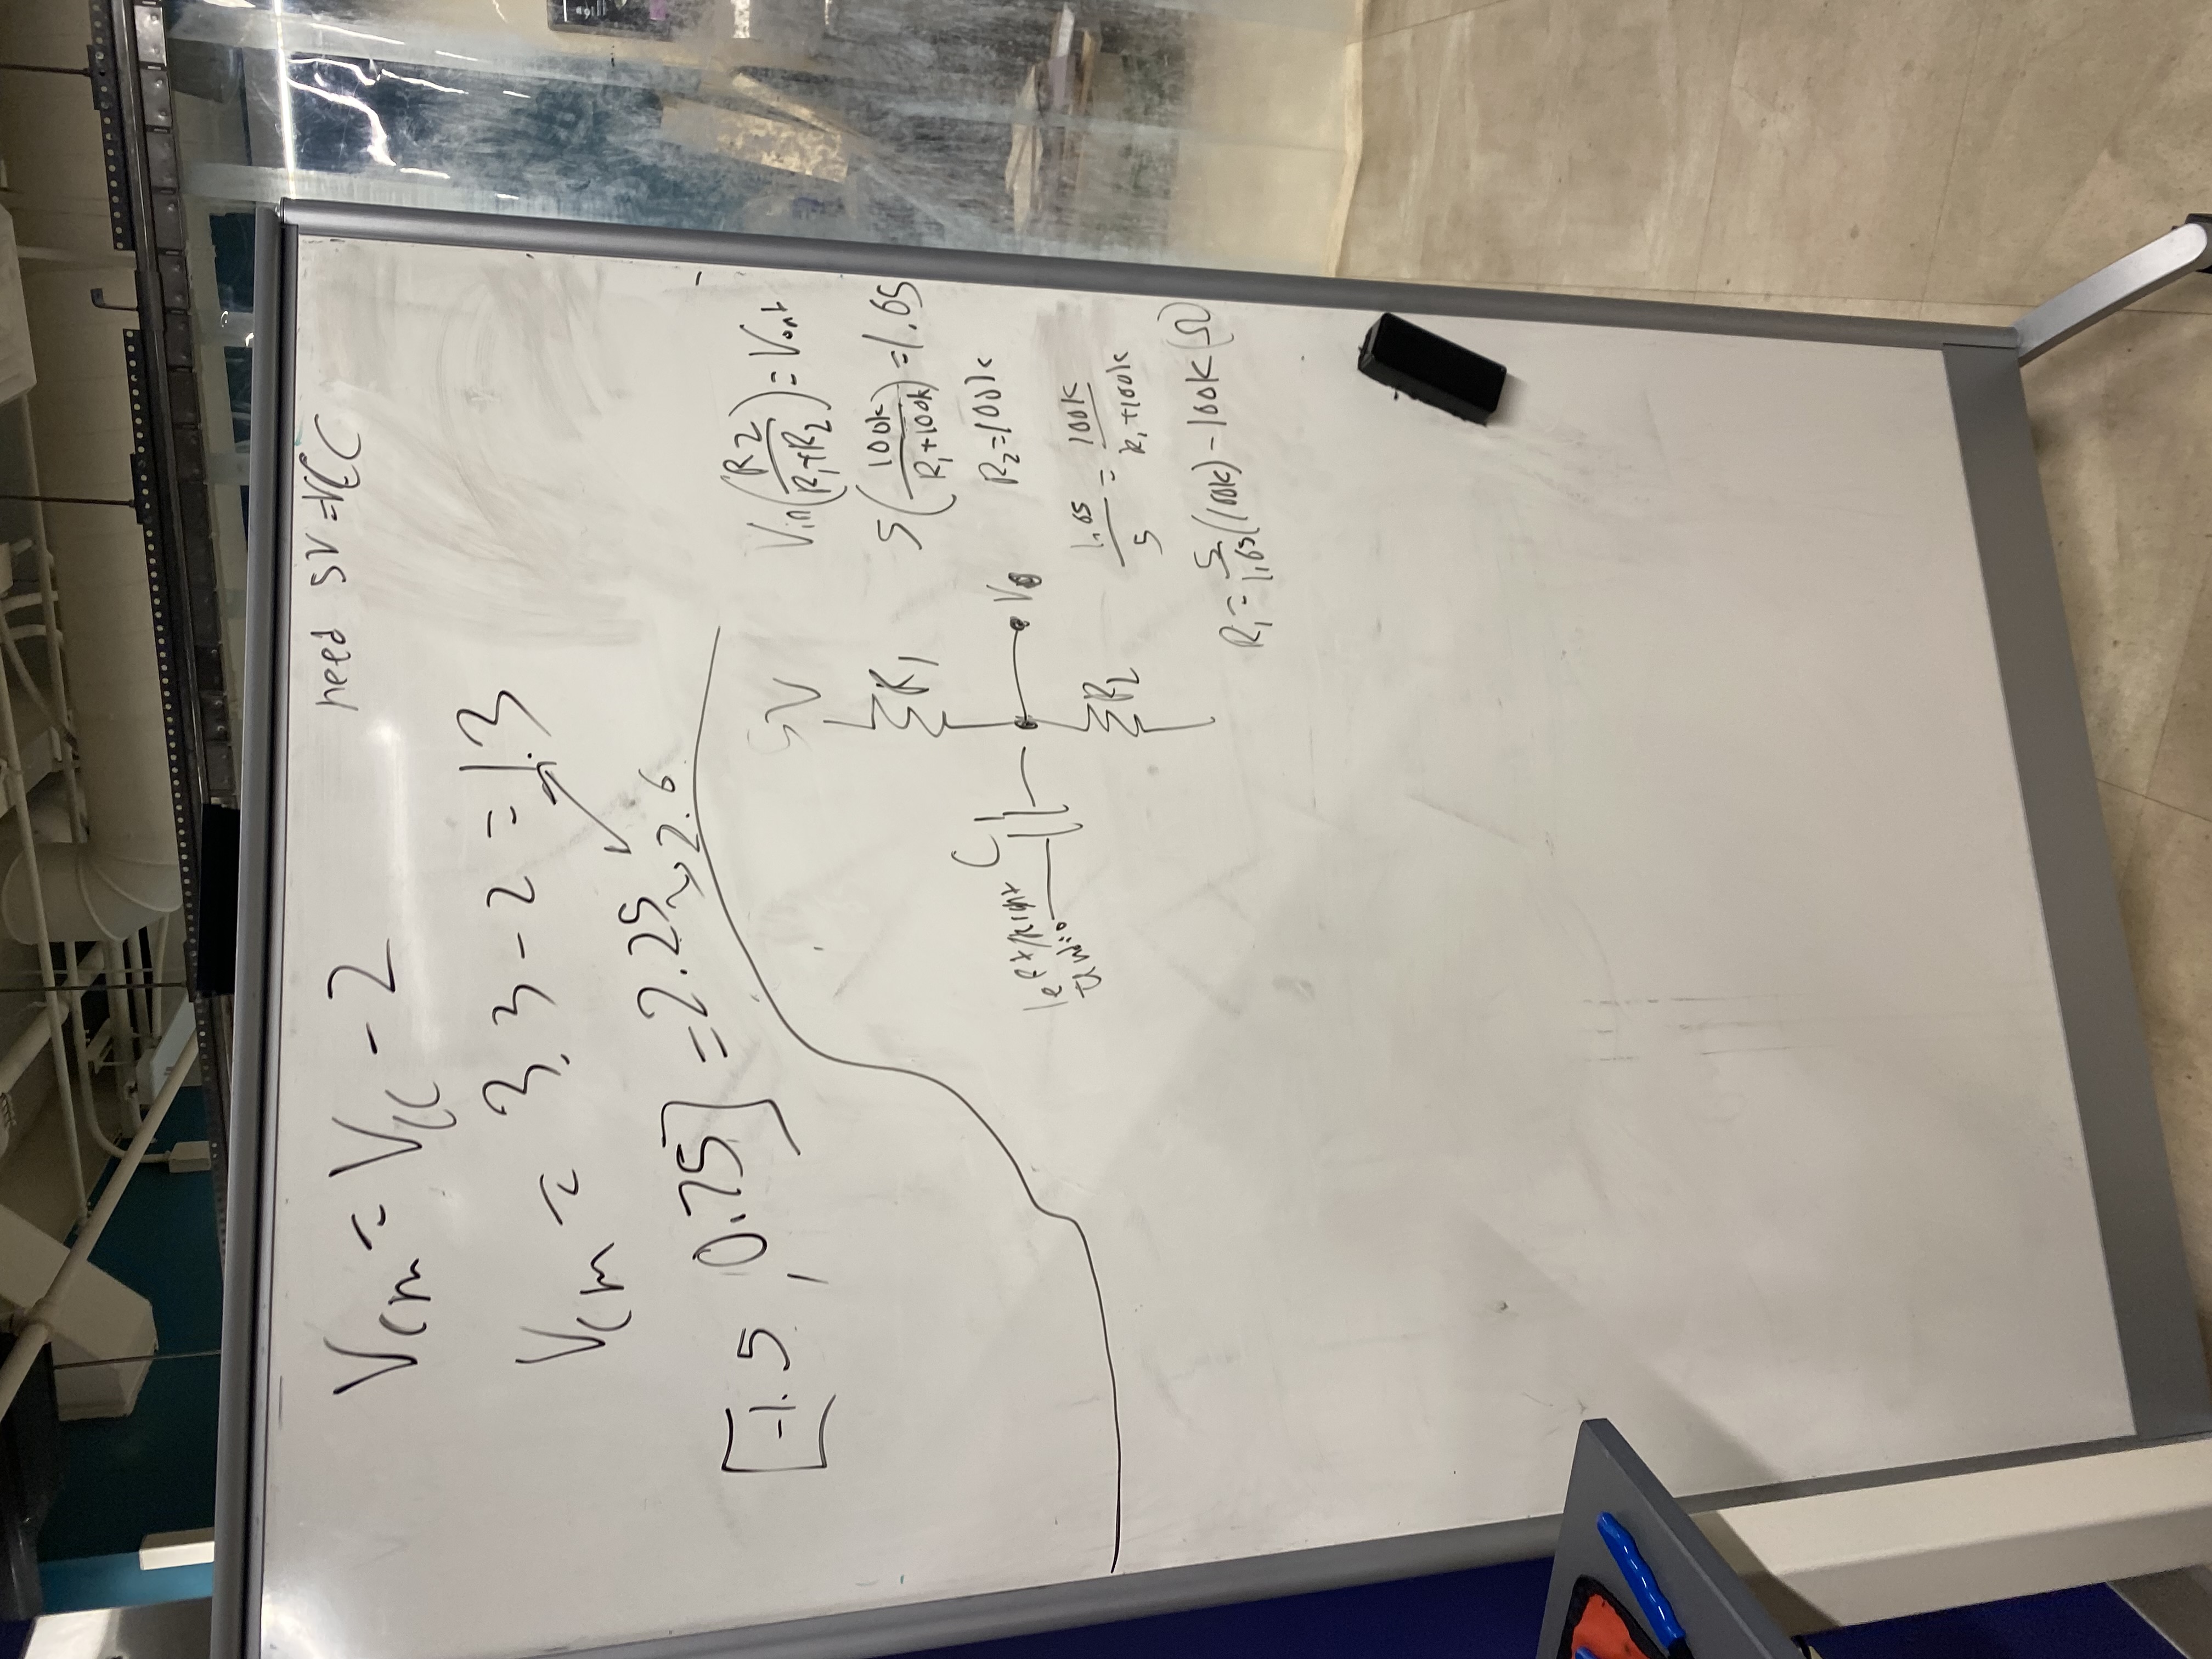 Vcm = Vcc - 2
need 5V = VCC
Vcm = 3.3 - 2 = 1.3
[-1.5, 0.75] = 2.25 ~> 2.6
5V
R1
C1
left/right
audio
Vo
R2
Vin(R2/(R1+R2)) = Vout
5(100k/(R1+100k)) = 1.65
R2 = 100k
1.65/5 = 100k/(R1+100k)
R1 = 5/1.65(100k) - 100k (Ω)